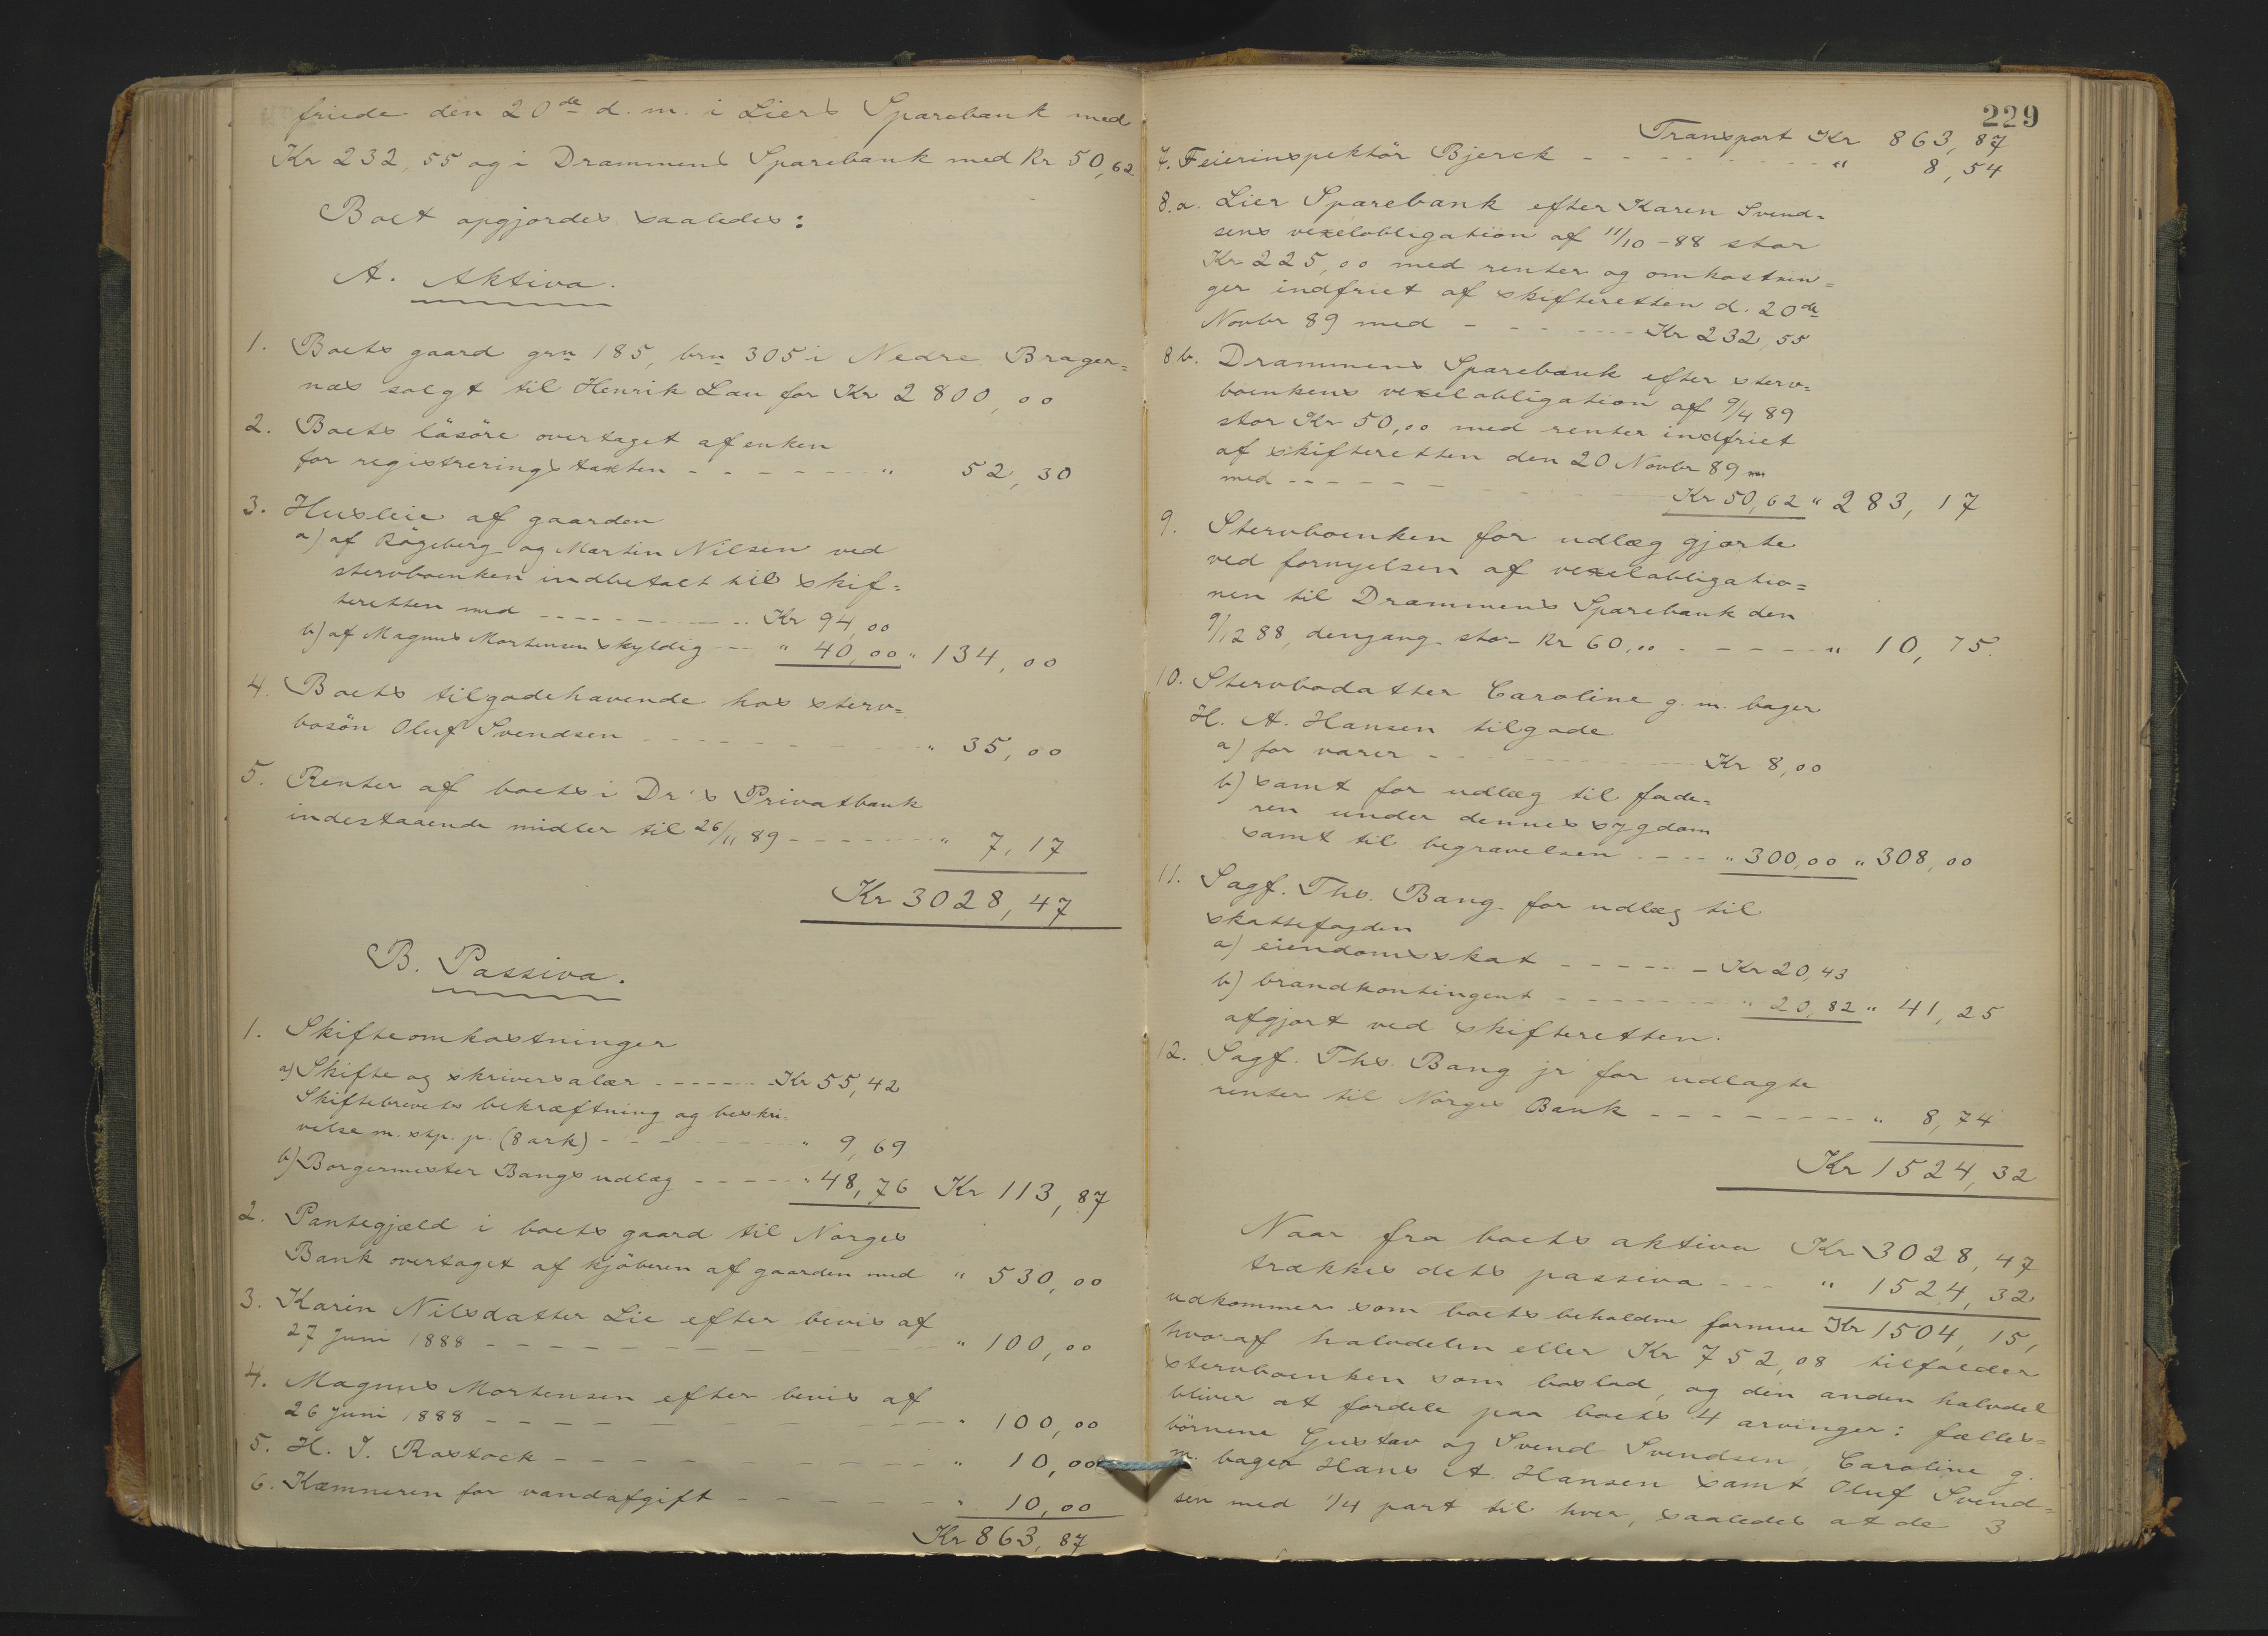 friede den 20de d. m. i Liers Sparebank med
Kr 232,55 og i Drammens Sparebank med Kr 50,62
Boet opgjordes saaledes:
A. Aktiva.
1. Boets gaard grn 185, brn 305 i Nedre Brager=
næs solgt til Henrik Lau for Kr 2800,00
2. Boets läsöre overtaget af enken
for registreringstaxten - - - - - - " 52,30
3. Husleie af gaarden
a) af Rågeberg og Martin Nilsen ved
stervboenken indbetalt til skif=
teretten med - - - - - - - Kr 94,00
b) af Magnus Mortensen skyldig - - " 40,00 " 134,00
4. Boets tilgodehavende hos sterv=
bosön Oluf Svendsen - - - - - - - - " 35,00
5. Renter af boets i Dr's Privatbank
indestaaende midler til 26/11 89 - - - - - - " 7,17
Kr 3028,47
B. Passiva.
1. Skifteomkostninger
a) Skifte og skriversalær - - - - - - Kr 55,42
Skiftebrevets bekræftning og beskri-
velse m. stp. p. (8 ark) - - - - - - " 9,69
b) Borgermester Bangs udlæg - - - - - " 48,76 Kr 113,87
2. Pantegjæld i boets gaard til Norges
Bank overtaget af kjöberen af gaarden med " 530,00
3. Karin Nilsdatter Lie efter bevis af
27 Juni 1888 - - - - - - - - - - - " 100,00
4. Magnus Mortensen efter bevis af
26 Juni 1888 - - - - - - - - - - - " 100,00
5. H. J. Rostock - - - - - - - - - - " 10,00
6. Kæmneren for vandafgift - - - - - - " 10,00
Kr 863,87
229
Transport Kr 863,87
7. Feierinspektör Bjerck - - - - - - - - " 8,54
8.a. Lier Sparebank efter Karen Svend=
sens vexelobligation af 11/10 - 88 stor
Kr 225,00 med renter og omkostnin=
ger indfriet af skifteretten d. 20de
Novbr 89 med - - - - - - - Kr 232,55
8 b. Drammens Sparebank efter sterv=
boenkens vexelobligation af 9/4 89
stor Kr 50,00 med renter indfriet
af skifteretten den 20 Novbr 89
med - - - - - - Kr 50,62 " 283,17
9. Stervboenken for udlæg gjorte
ved fornyelsen af vexelobligatio=
nen til Drammens Sparebank den
9/12 88, dengang stor Kr 60,00 - - - - - - " 10,75.
10. Stervbodatter Caroline g. m. bager
H. A. Hansen tilgode
a) for varer - - - - - - - - Kr 8,00
b) samt for udlæg til fade=
ren under dennes sygdom
samt til begravelsen - - - - " 300,00 " 308,00
11. Sagf. Ths. Bang for udlæg til
skattefogden
a) eiendomsskat - - - - - - Kr 20,43
b) brandkontingent - - - - - - - " 20,82 " 41,25
afgjort ved skifteretten.
12. Sagf. Ths. Bang jr for udlagte
renter til Norges Bank - - - - - - - - " 8,74
Kr 1524,32
Naar fra boets aktiva Kr 3028,47
trækkes dets passiva - - - " 1524,32
udkommer som boets beholdne formue Kr 1504,15,
hvoraf halvdelen eller Kr 752,08 tilfalder
stervboenken som boslod, og den anden halvdel
bliver at fordele paa boets 4 arvinger: fælles=
börnene Gustav og Svend Svendsen, Caroline g.
m. bager Hans A. Hansen samt Oluf Svend=
sen med 1/4 part til hver, saaledes at de 3